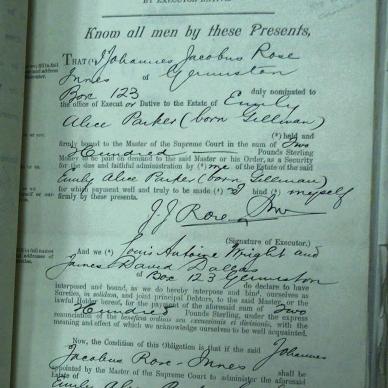 BY EXECUTOR DATIVE
Know all men by these Presents,
THAT (¹) I Johannes Jacobus Rose
Innes of Germiston
Box 123 duly nominated to
the office of Executor Dative to the Estate of Emily
Alice Parker (born Gillman)
(²) held and
firmly bound to the Master of the Supreme Court in the sum of Two
Hundred Pounds Sterling
Money to be paid on demand to the said Master or his Order, as a Security
for the due and faithful administration by (³) me of the Estate of the said
Emily Alice Parker (born Gillman)
for which payment well and truly to be made (⁴) I bind (⁵) myself
firmly by these presents.
J. J. Rose Innes
(Signature of Executor.)
And we (⁶) Louis Antoine Wright and
James David Dallas
of Box 123 Germiston
do declare to have
interposed and bound, as we do hereby interpose and bind, ourselves as
Sureties, in solidum, and joint principal Debtors, to the said Master, or the
lawful Holder hereof, for the payment of the aforesaid sum of Two
Hundred Pounds Sterling, under the express
renunciation of the beneficia ordinis seu excussionis et divisionis, with the
meaning and effect of which we acknowledge ourselves to be well acquainted.
Now, the Condition of this Obligation is that if the said Johannes
Jacobus Rose-Innes shall be
appointed by the Master of the Supreme Court to administer the aforesaid
Estate of
Emily Alice